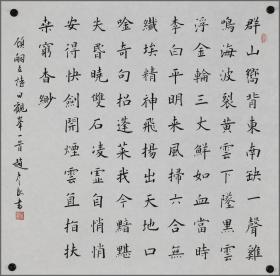 群山嚮背東南缺一聲雞
鳴海波裂黃雲下墜黑雲
浮金輪三丈鮮如血當時
李白平明來風掃六合無
纖埃精神飛揚出天地口
唫奇句招蓬萊我今黯黮
失昏曉雙石凌虛自悄悄
安得快劍開煙雲直指扶
桑窮杳緲
顧嗣立詩日觀峯一首 趙彥良書